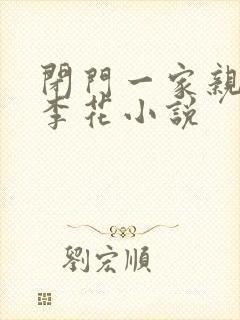 閉門一家親
李花小說
劉宏順